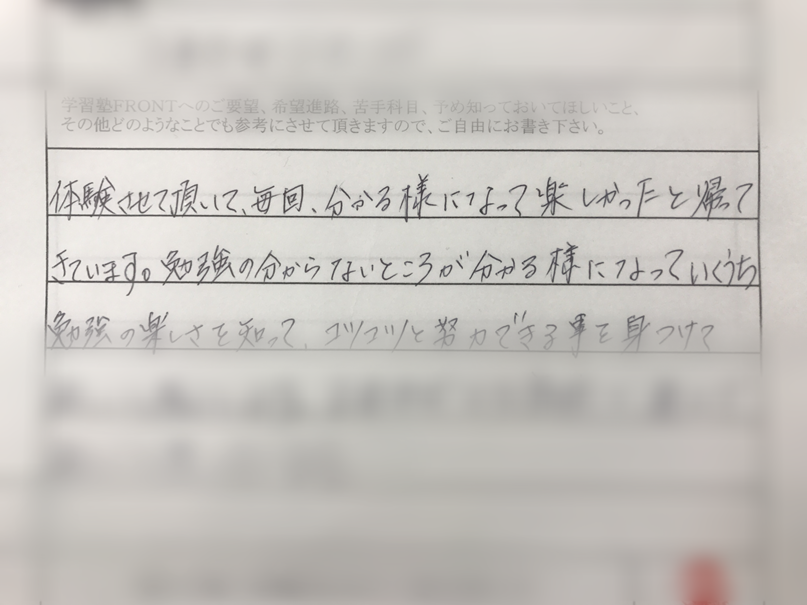 学習塾FRONTへのご要望、希望進路、苦手科目、予め知っておいてほしいこと、
その他どのようなことでも参考にさせて頂きますので、ご自由にお書き下さい。
体験させて頂いて、毎回、分かる様になって楽しかったと帰って
きています。勉強の分からないところが分かる様になっていくうち
勉強の楽しさを知って、コツコツと努力できる事を身つけて